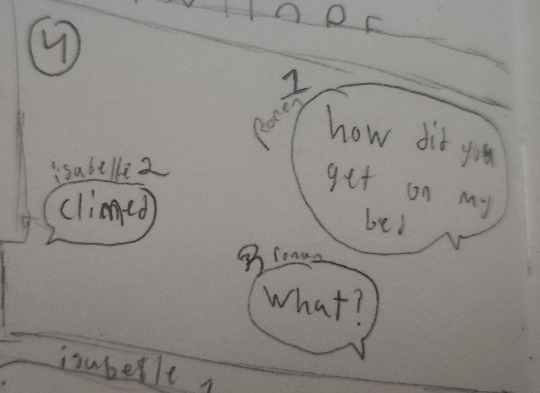 4
1
Ronen
how did you
get on my
bed
isabelle 2
climed
3 ronan
What?
isabelle 1